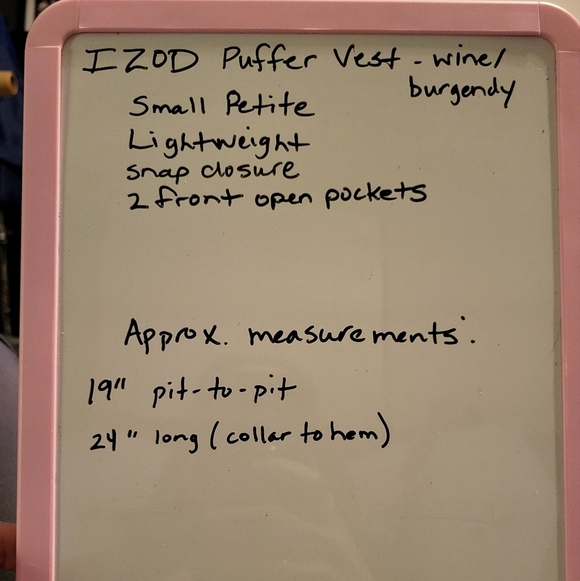 IZOD Puffer Vest - wine/
burgendy
Small Petite
Lightweight
snap closure
2 front open pockets
Approx. measurements:
19" pit-to-pit
24" long (collar to hem)